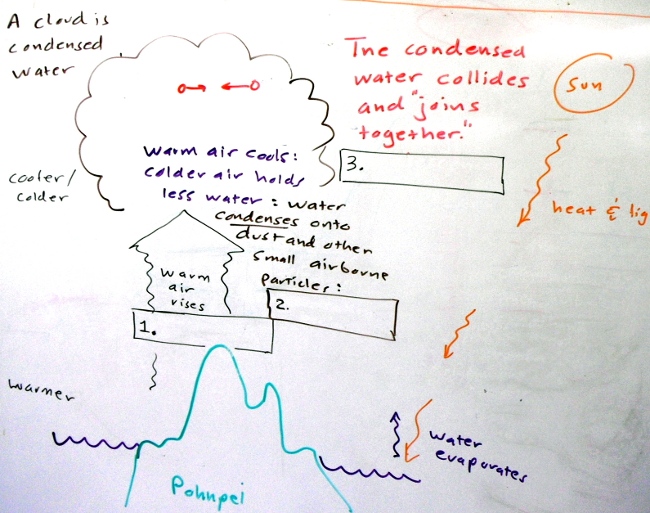 A cloud is
condensed
water
The condensed
water collides
and "joins
together."
Sun
3.
warm air cools:
colder air holds
less water: water
condenses onto
dust and other
small airborne
particles:
cooler/
colder
heat & lig
warm
air
rises
2.
1.
warmer
water
evaporates
Pohnpei